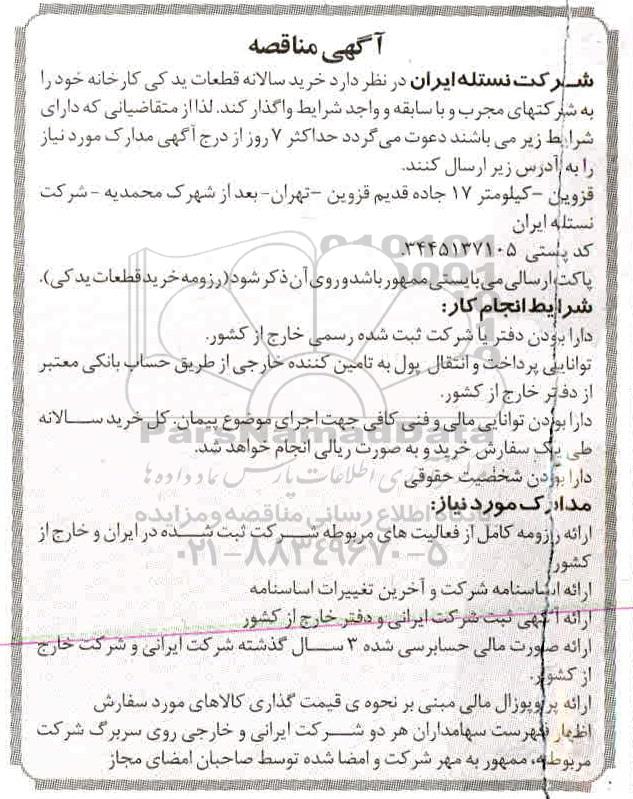 آگهی مناقصه
شرکت نستله ایران در نظر دارد خرید سالانه قطعات یدکی کارخانه خود را
به شرکتهای مجرب و با سابقه و واجد شرایط واگذار کند. لذا از متقاضیانی که دارای
شرایط زیر می باشند دعوت می گردد حداکثر ۷ روز از درج آگهی مدارک مورد نیاز
را به آدرس زیر ارسال کنند.
قزوین –کیلومتر ۱۷ جاده قدیم قزوین –تهران- بعد از شهرک محمدیه – شرکت
نستله ایران
کد پستی ۳۴۴۵۱۳۷۱۰۵.
پاکت ارسالی می بایستی ممهور باشد و روی آن ذکر شود (رزومه خرید قطعات یدکی).
شرایط انجام کار:
دارا بودن دفتر یا شرکت ثبت شده رسمی خارج از کشور.
توانایی پرداخت و انتقال پول به تامین کننده خارجی از طریق حساب بانکی معتبر
از دفتر خارج از کشور.
دارا بودن توانایی مالی و فنی کافی جهت اجرای موضوع پیمان. کل خرید سالانه
طی یک سفارش خرید و به صورت ریالی انجام خواهد شد.
ParsNamadData
دارا بودن شخصیت حقوقی
مدارک مورد نیاز:
پایگاه اطلاع رسانی مناقصه و مزایده
ارائه رزومه کامل از فعالیت های مربوطه شرکت ثبت شده در ایران و خارج از
کشور
۰۲۱-۸۸۳۴۹۶۷۰-۵
ارائه اساسنامه شرکت و آخرین تغییرات اساسنامه
ارائه آگهی ثبت شرکت ایرانی و دفتر خارج از کشور
ارائه صورت مالی حسابرسی شده ۳ سال گذشته شرکت ایرانی و شرکت خارج
از کشور.
ارائه پروپوزال مالی مبنی بر نحوه ی قیمت گذاری کالاهای مورد سفارش
اظهار فهرست سهامداران هر دو شرکت ایرانی و خارجی روی سربرگ شرکت
مربوطه، ممهور به مهر شرکت و امضا شده توسط صاحبان امضای مجاز